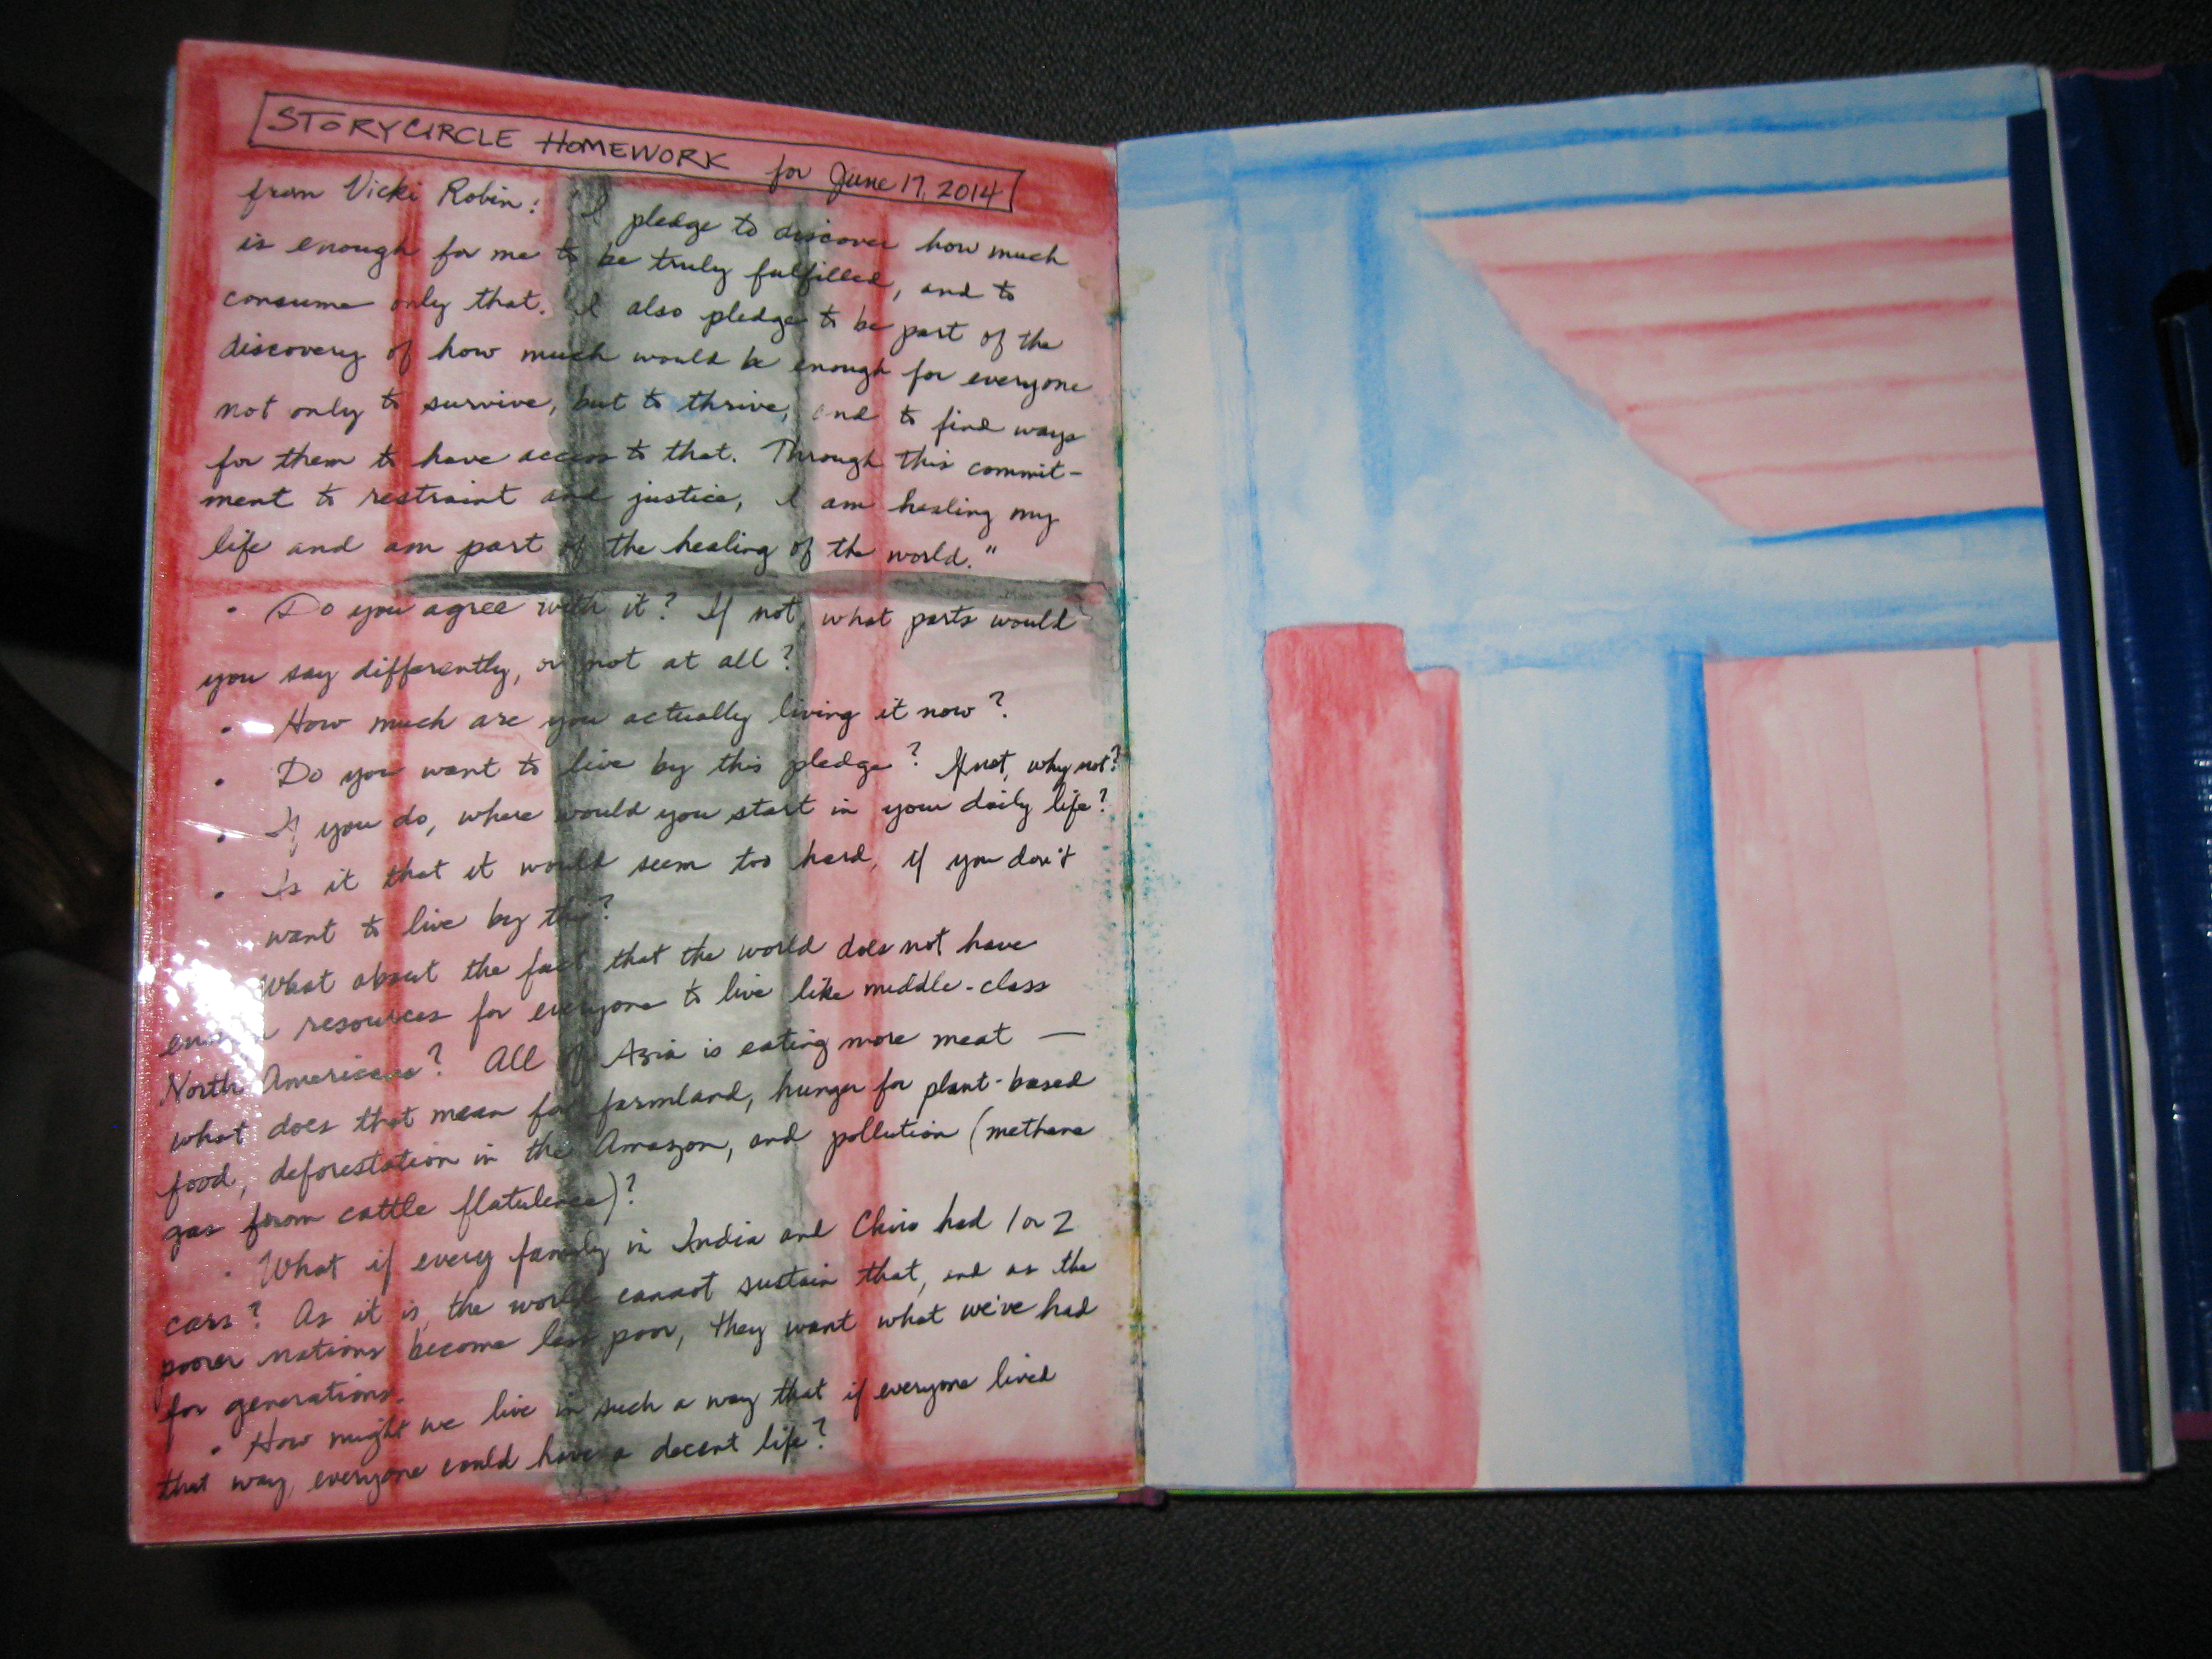 STORYCIRCLE HOMEWORK for June 17, 2014
from Vicki Robin: "I pledge to discover how much
is enough for me to be truly fulfilled, and to
consume only that. I also pledge to be part of the
discovery of how much would be enough for everyone
not only to survive, but to thrive, and to find ways
for them to have access to that. Through this commit-
ment to restraint and justice, I am healing my
life and am part of the healing of the world."
• Do you agree with it? If not, what parts would
you say differently, or not at all?
• How much are you actually living it now?
• Do you want to live by this pledge? If not, why not?
• If you do, where would you start in your daily life?
• Is it that it would seem too hard, if you don't
want to live by this?
What about the fact that the world does not have
enough resources for everyone to live like middle-class
North Americans? All of Asia is eating more meat —
what does that mean for farmland, hunger for plant-based
food, deforestation in the Amazon, and pollution (methane
gas from cattle flatulence)?
• What if every family in India and China had 1 or 2
cars? As it is, the world cannot sustain that, and as the
poorer nations become less poor, they want what we've had
for generations.
• How might we live in such a way that if everyone lived
that way, everyone could have a decent life?